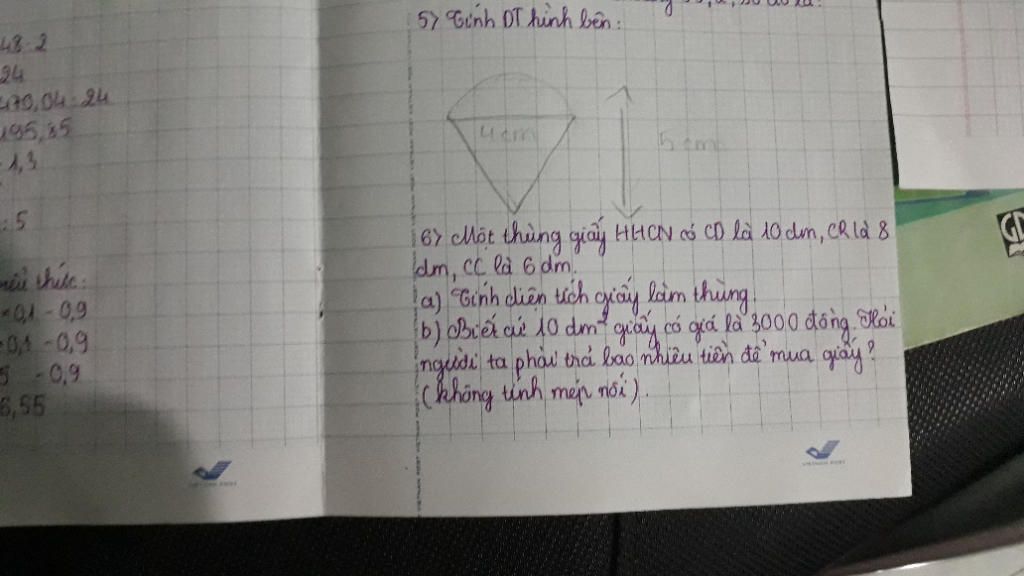 48 : 2
24
470,04 - 24
195,35
1,3
: 5
thức:
0,1 - 0,9
0,1 - 0,9
5 - 0,9
6,55
VIETNAM POST
5> Tính DT hình bên:
4 cm
5 cm
6> Một thùng giấy HHCN có CD là 10 dm, CR là 8
dm, CC là 6 dm.
a) Tính diện tích giấy làm thùng.
b) Biết cứ 10 dm² giấy có giá là 3000 đồng. Hỏi
người ta phải trả bao nhiêu tiền để mua giấy?
(không tính mép nối).
VIETNAM POST